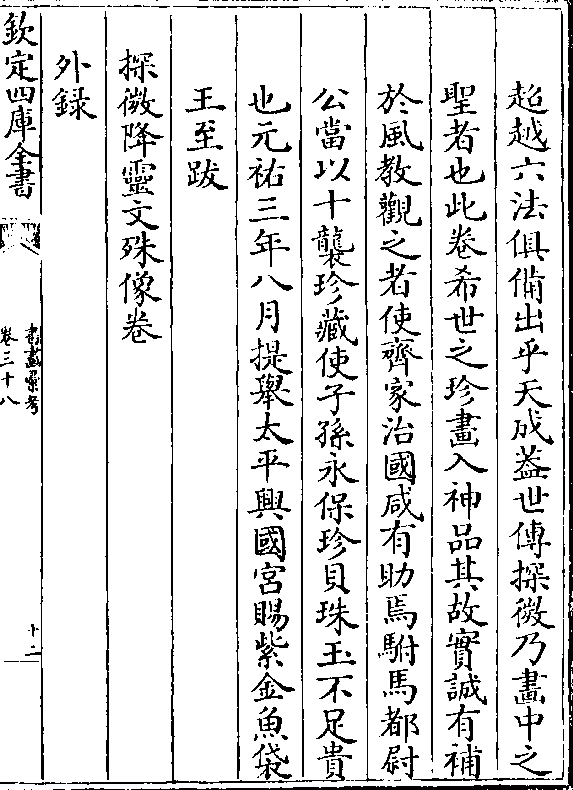 超越六法俱備出乎天成葢世傳探微乃畫中之
聖者也此卷希世之珍畫入神品其故實誠有補
於風教觀之者使齊家治國咸有助焉駙馬都尉
公當以十襲珍藏使子孫永保珍貝珠玉不足貴
也元祐三年八月提舉太平興國宮賜紫金魚袋
王至跋
探微降靈文殊像卷
外録
欽定四庫全書
書畫彚考
卷三十八
十二